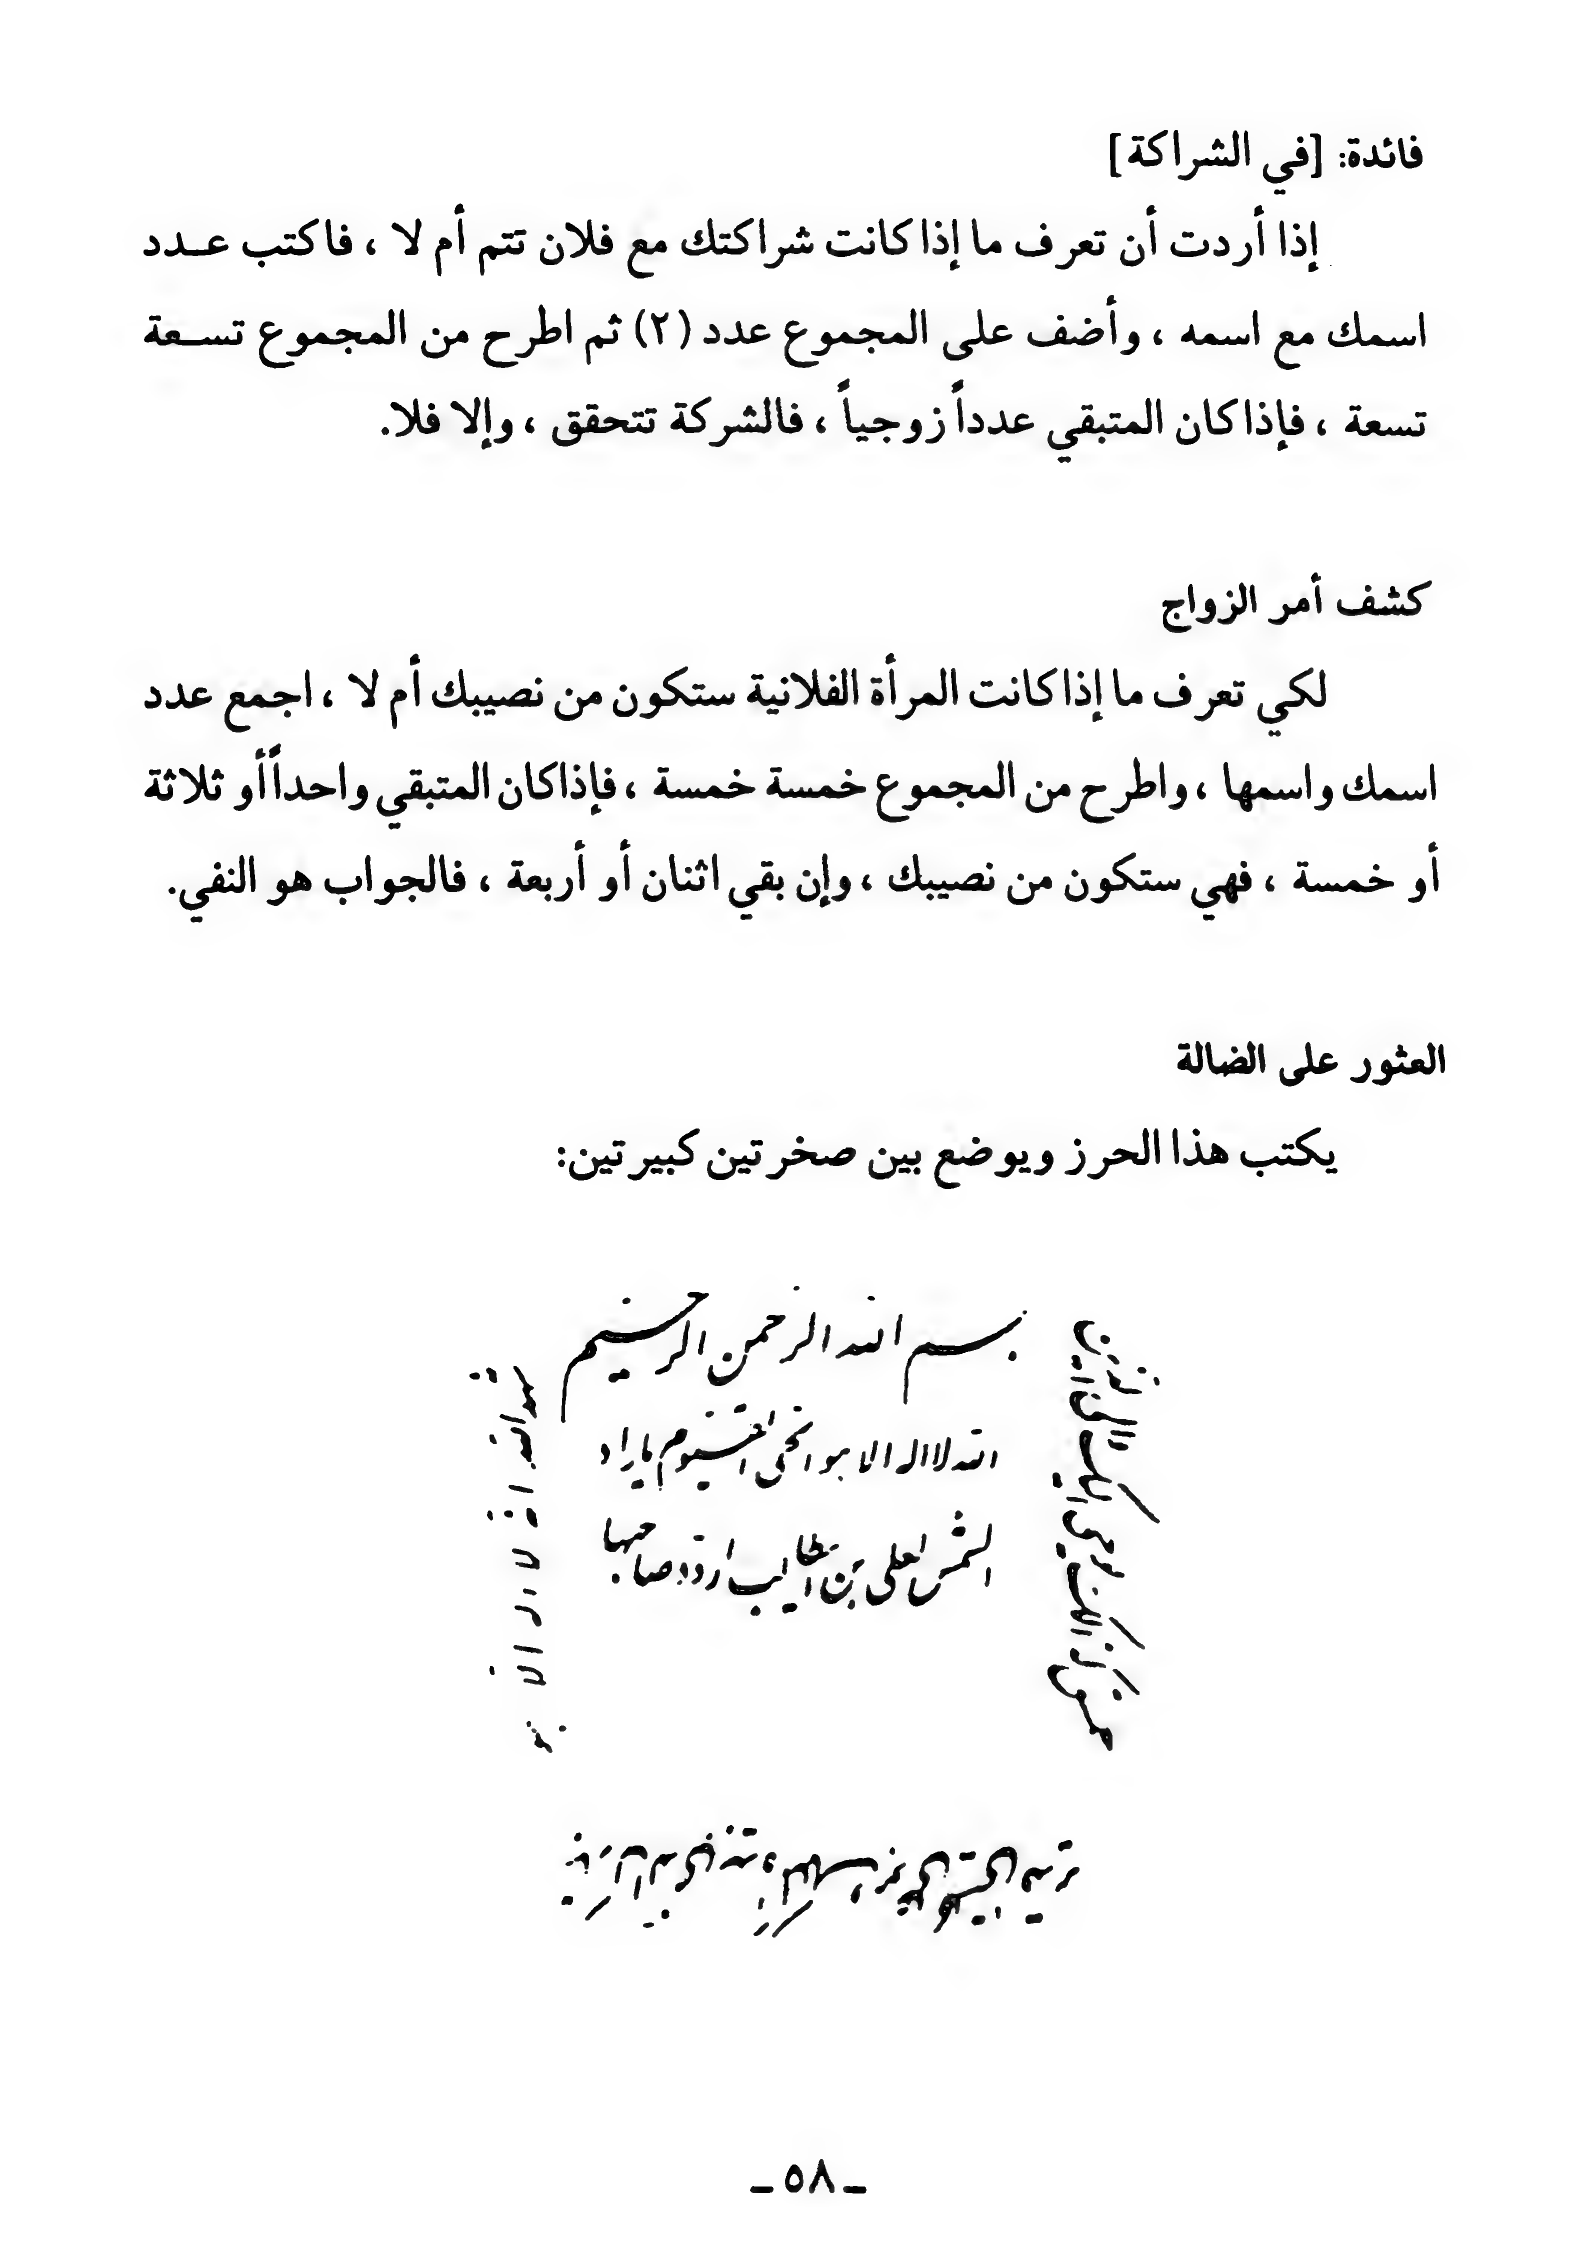 فائدة: [في الشراكة]
إذا أردت أن تعرف ما إذا كانت شراكتك مع فلان تتم أم لا ، فاكتب عـدد
اسمك مع اسمه ، وأضف على المجموع عدد (٢) ثم اطرح من المجموع تسـعة
تسعة ، فإذا كان المتبقي عدداً زوجياً ، فالشركة تتحقق ، وإلا فلا.
كشف أمر الزواج
لكي تعرف ما إذا كانت المرأة الفلانية ستكون من نصيبك أم لا ، اجمع عدد
اسمك واسمها ، واطرح من المجموع خمسة خمسة ، فإذا كان المتبقي واحداً أو ثلاثة
أو خمسة ، فهي ستكون من نصيبك ، وإن بقي اثنان أو أربعة ، فالجواب هو النفي.
العثور على الضالة
يكتب هذا الحرز ويوضع بين صخرتين كبيرتين:
بسم الله الرحمن الرحيم
الله لا اله الا هو الحي القيوم يا راد
الشمس لعلى بن ابيطالب اردد صاحبها
حمعسق كذلك يوحى اليك والى الذين من
شهد الله انه لا اله الا هو
ـ ٥٨ ـ